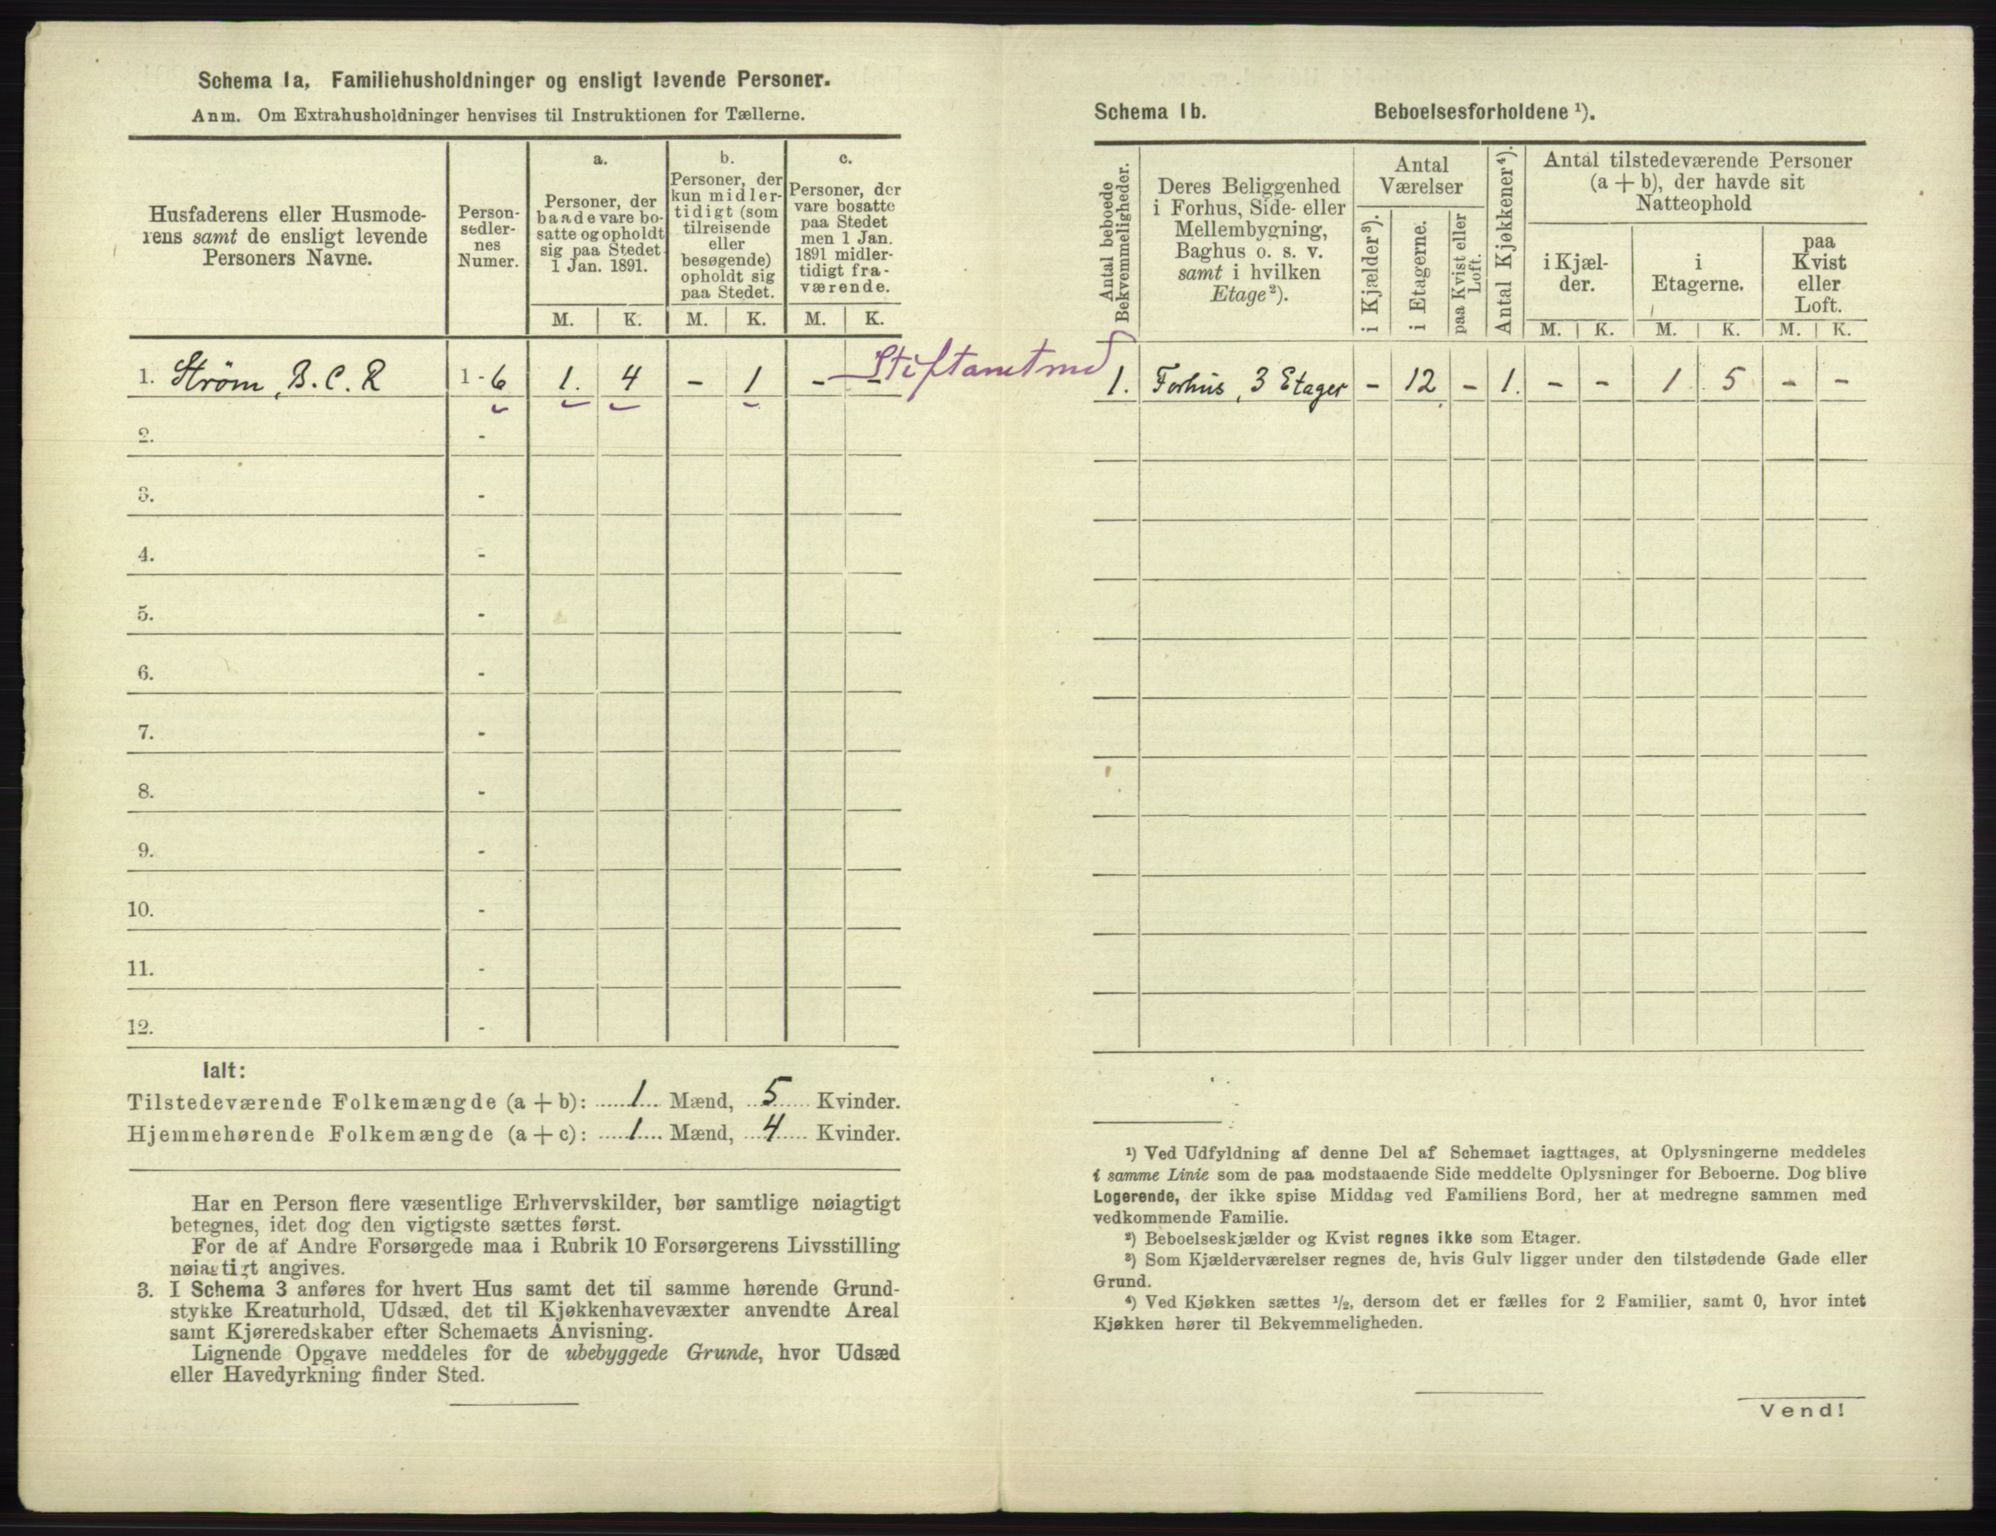 Schema 1a, Familiehusholdninger og ensligt levende Personer.
Anm. Om Extrahusholdninger henvises til Instruktionen for Tællerne.
Husfaderens eller Husmode-
rens samt de ensligt levende
Personers Navne.
Person-
sedler-
nes
Numer.
a.
Personer, der
baade vare bo-
satte og opholdt
sig paa Stedet
1 Jan. 1891.
b.
Personer, der
kun midler-
tidigt (som
tilreisende
eller
besøgende)
opholdt sig
paa Stedet.
c.
Personer, der
vare bosatte
paa Stedet
men 1 Jan.
1891 midler-
tidigt fra-
værende.
M. K. M. K. M. K.
1. Strøm, B. C. R 1 - 6 1. 4 - 1 - - Stiftamtmd
2. -
3. -
4. -
5. -
6. -
7. -
8. -
9. -
10. -
11. -
12. -
Ialt:
Tilstedeværende Folkemængde (a + b): 1 Mænd, 5 Kvinder.
Hjemmehørende Folkemængde (a + c): 1 Mænd, 4 Kvinder.
Har en Person flere væsentlige Erhvervskilder, bør samtlige nøiagtigt
betegnes, idet dog den vigtigste sættes først.
For de af Andre Forsørgede maa i Rubrik 10 Forsørgerens Livsstilling
nøiagtigt angives.
3. I Schema 3 anføres for hvert Hus samt det til samme hørende Grund-
stykke Kreaturhold, Udsæd, det til Kjøkkenhavevæxter anvendte Areal
samt Kjøreredskaber efter Schemaets Anvisning.
Lignende Opgave meddeles for de ubebyggede Grunde, hvor Udsæd
eller Havedyrkning finder Sted.
Schema 1b. Beboelsesforholdene ¹).
Antal beboede
Bekvemmeligheder.
Deres Beliggenhed
i Forhus, Side- eller
Mellembygning,
Baghus o. s. v.
samt i hvilken
Etage²).
Antal
Værelser
i Kjælder³).
i Etagerne.
paa Kvist eller
Loft.
Antal Kjøkkener⁴).
Antal tilstedeværende Personer
(a + b), der havde sit
Natteophold
i Kjæl-
der.
i
Etagerne.
paa
Kvist
eller
Loft.
M. K. M. K. M. K.
1. Forhus, 3 Etager - 12 - 1. - - 1. 5 - -
¹) Ved Udfyldning af denne Del af Schemaet iagttages, at Oplysningerne meddeles
i samme Linie som de paa modstaaende Side meddelte Oplysninger for Beboerne. Dog blive
Logerende, der ikke spise Middag ved Familiens Bord, her at medregne sammen med
vedkommende Familie.
²) Beboelseskjælder og Kvist regnes ikke som Etager.
³) Som Kjælderværelser regnes de, hvis Gulv ligger under den tilstødende Gade eller
Grund.
⁴) Ved Kjøkken sættes ½, dersom det er fælles for 2 Familier, samt 0, hvor intet
Kjøkken hører til Bekvemmeligheden.
Vend!